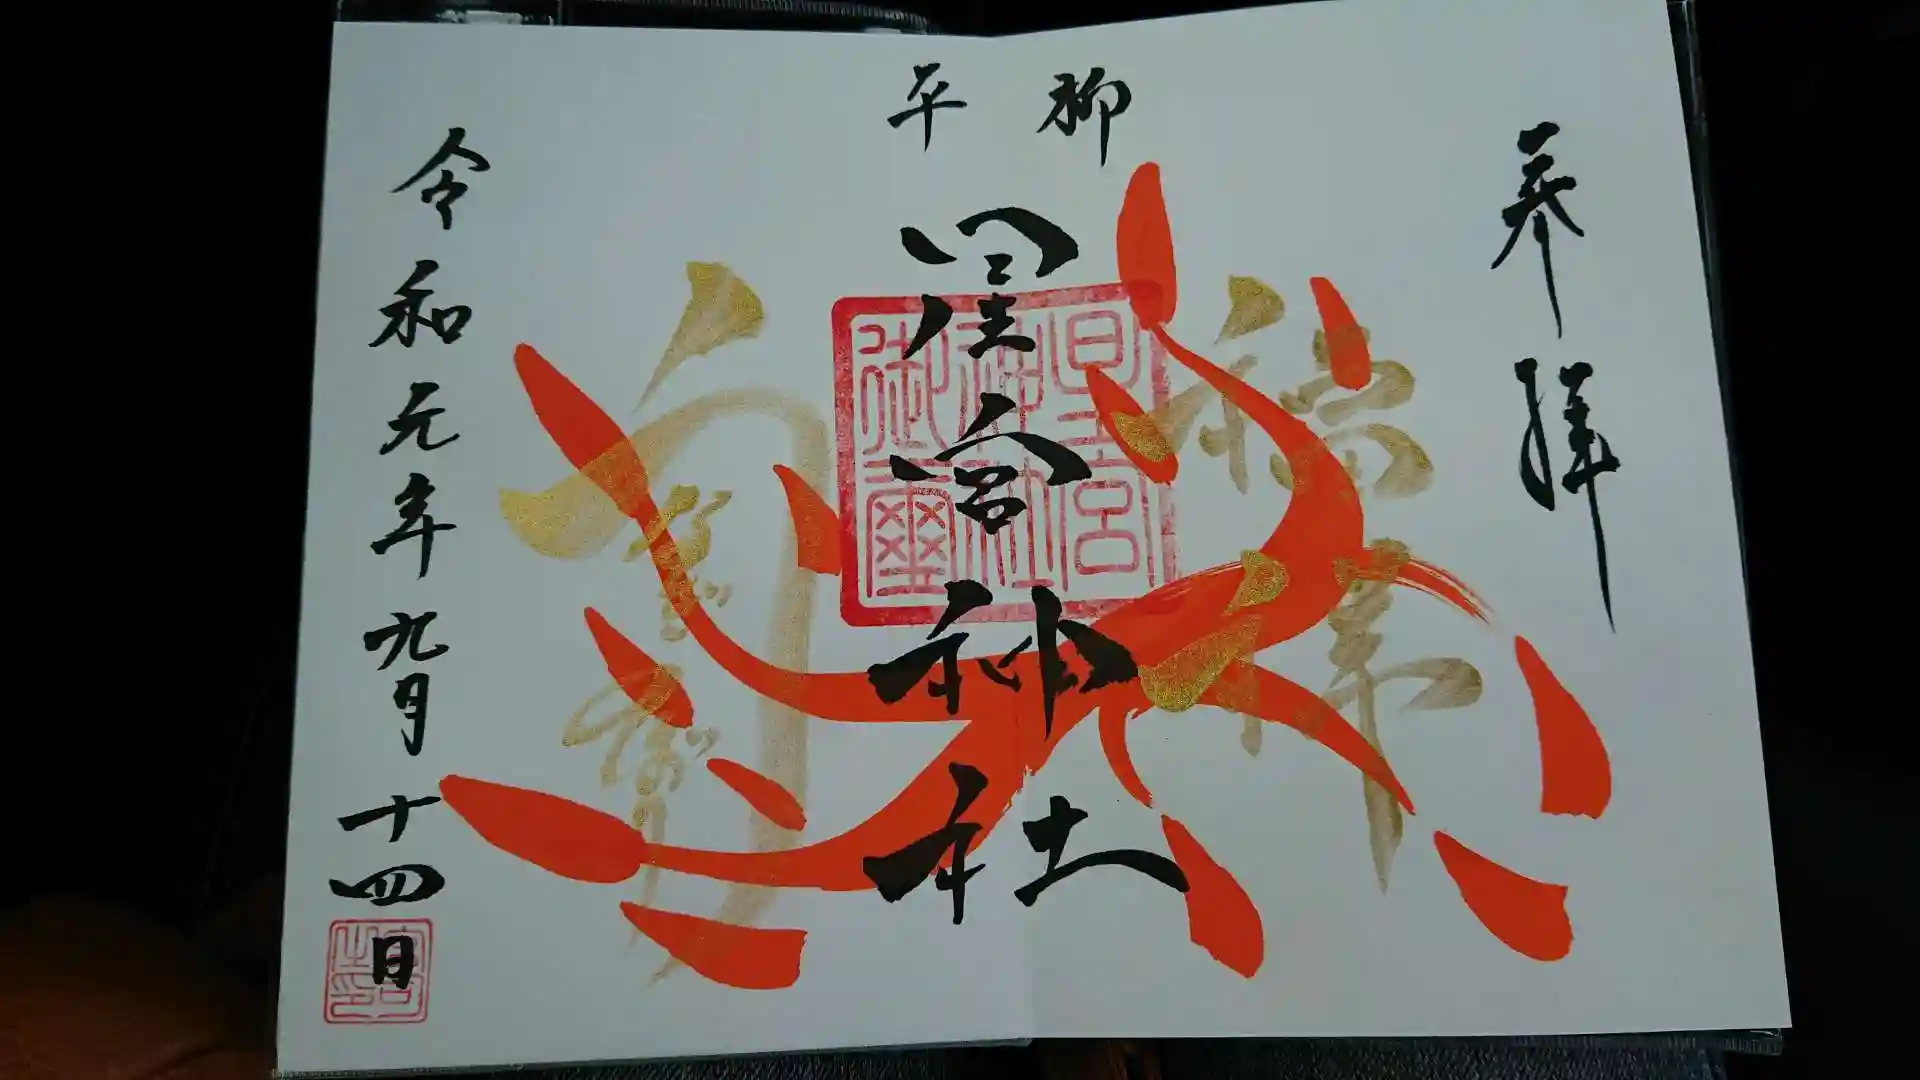 奉拝
柳平
星宮神社
星宮
神社
御璽
令和元年九月十四日
宮司
之印